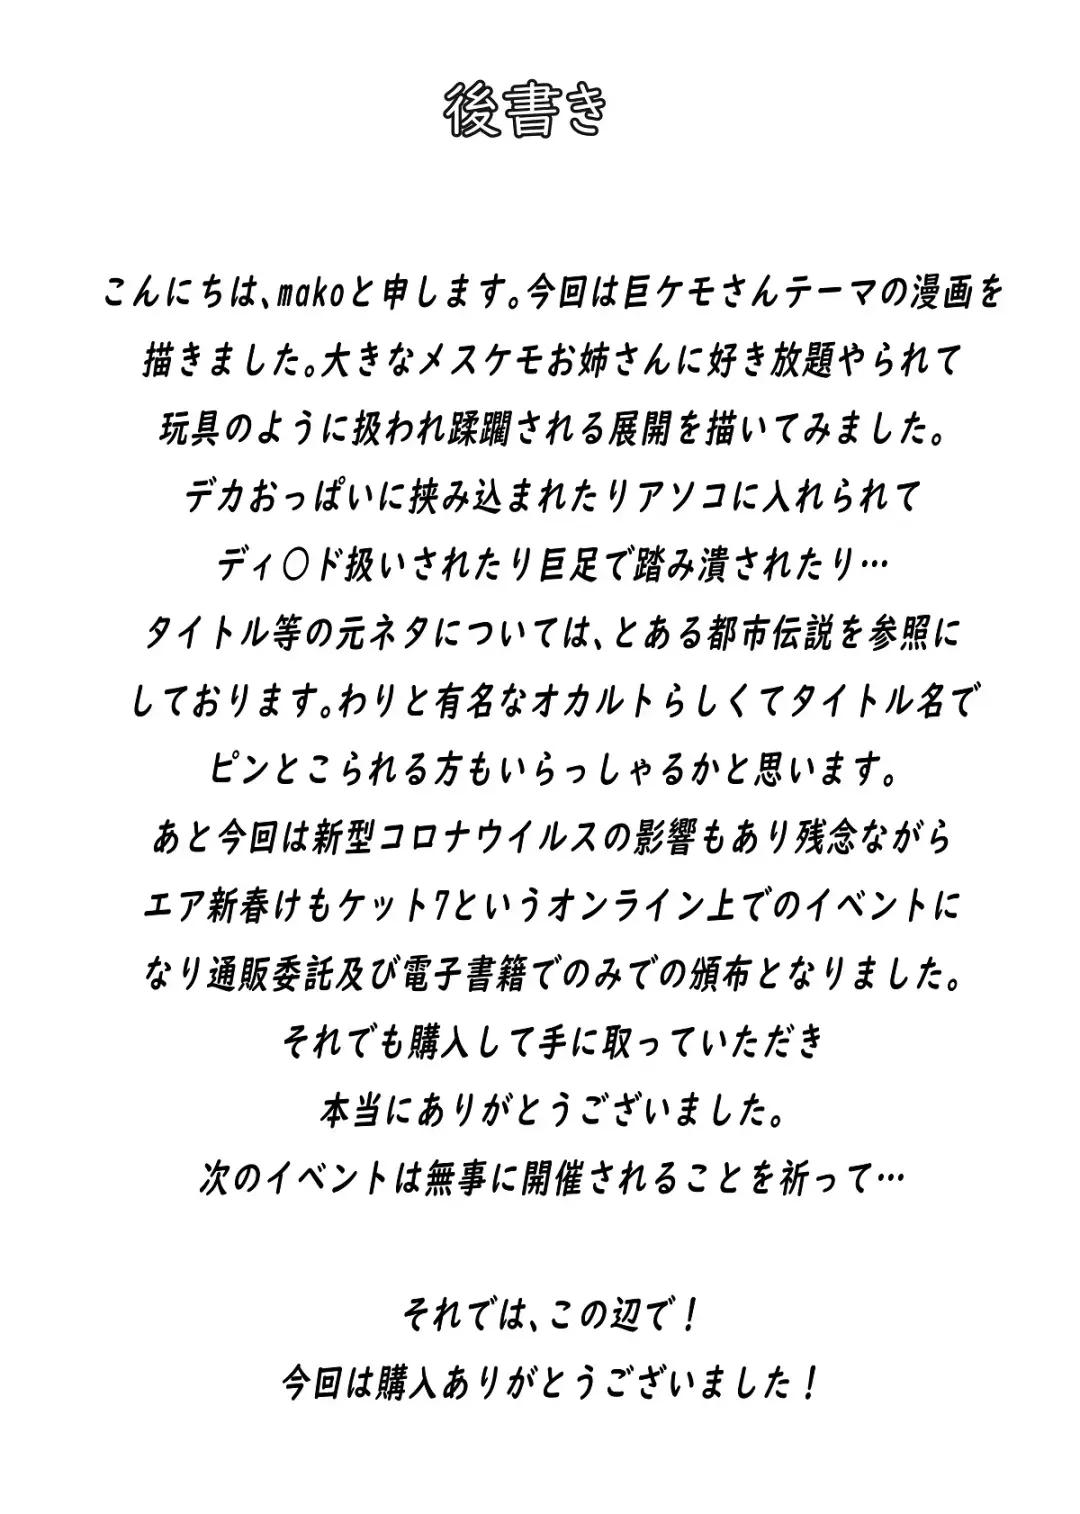 後書き
こんにちは、makoと申します。今回は巨ケモさんテーマの漫画を
描きました。大きなメスケモお姉さんに好き放題やられて
玩具のように扱われ蹂躙される展開を描いてみました。
デカおっぱいに挟み込まれたりアソコに入れられて
ディ〇ド扱いされたり巨足で踏み潰されたり…
タイトル等の元ネタについては、とある都市伝説を参照に
しております。わりと有名なオカルトらしくてタイトル名で
ピンとこられる方もいらっしゃるかと思います。
あと今回は新型コロナウイルスの影響もあり残念ながら
エア新春けもケット7というオンライン上でのイベントに
なり通販委託及び電子書籍でのみでの頒布となりました。
それでも購入して手に取っていただき
本当にありがとうございました。
次のイベントは無事に開催されることを祈って…
それでは、この辺で！
今回は購入ありがとうございました！